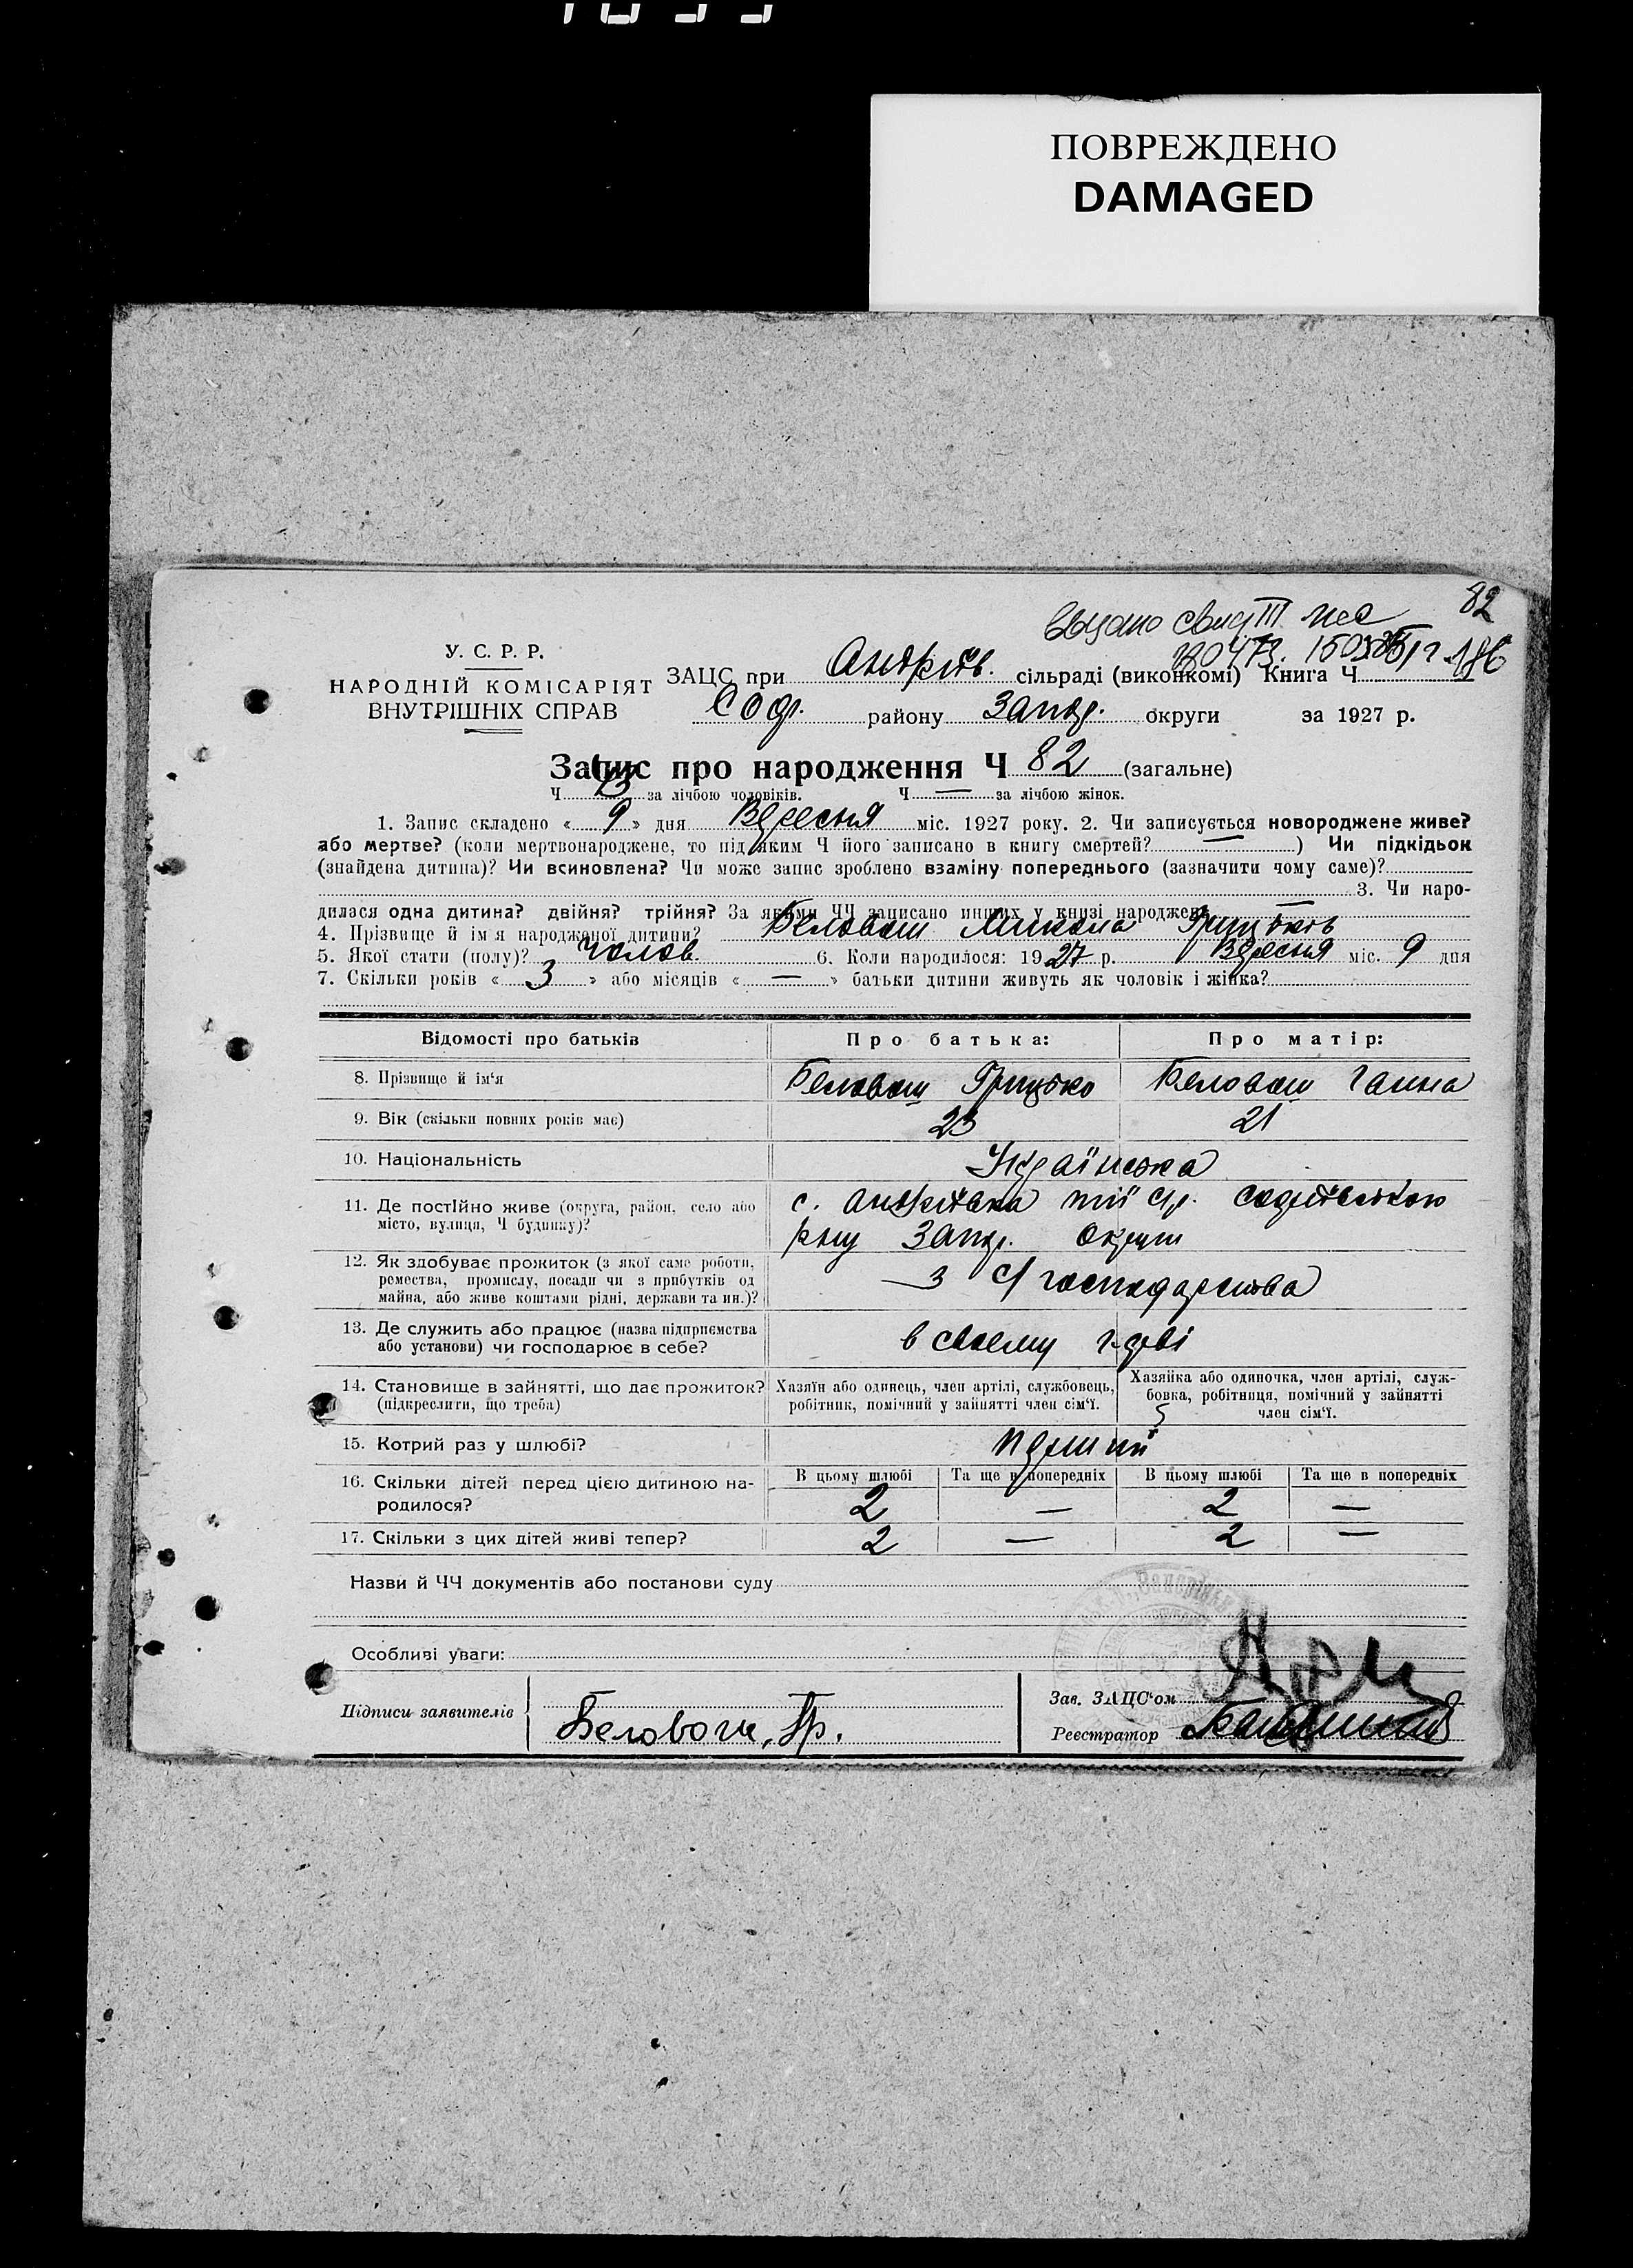 ПОВРЕЖДЕНО
DAMAGED
82
У. С. Р. Р.
НАРОДНІЙ КОМІСАРІЯТ
ВНУТРІШНІХ СПРАВ
ЗАЦС при Андріїв. сільраді (виконкомі) Книга Ч
Соф. району Запор. округи за 1927 р.
Запис про народження Ч 82 (загальне)
Ч за лічбою чоловіків. Ч — за лічбою жінок.
1. Запис складено « 9 » дня Вересня міс. 1927 року. 2. Чи записується новороджене живе?
або мертве? (коли мертвонароджене, то під яким Ч його записано в книгу смертей? — ) Чи підкідьок
(знайдена дитина)? Чи всиновлена? Чи може запис зроблено взаміну попереднього (зазначити чому саме)?
3. Чи наро-
дилася одна дитина? двійня? трійня? За якими ЧЧ записано инших у книзі народжень —
4. Прізвище й ім'я народженої дитини? Беловол Микола Грицьків
5. Якої стати (полу)? Чолов. 6. Коли народилося: 1927 р. Вересня міс. 9 дня
7. Скільки років « 3 » або місяців « — » батьки дитини живуть як чоловік і жінка?
Відомості про батьків Про батька: Про матір:
8. Прізвище й ім'я Беловол Грицько Беловол Ганна
9. Вік (скільки повних років має) 23 21
10. Національність Українська
11. Де постійно живе (округа, район, село або
місто, вулиця, Ч будинку)?
с. Андріївка тії с/р. Софіївського
р-ну Запор. Округи
12. Як здобуває прожиток (з якої саме роботи,
ремества, промислу, посади чи з прибутків од
майна, або живе коштами рідні, держави та ин.)?
з с/господарства
13. Де служить або працює (назва підприємства
або установи) чи господарює в себе?
в своєму г-дві
14. Становище в зайнятті, що дає прожиток?
(підкреслити, що треба)
Хазяїн або одинець, член артілі, службовець,
робітник, помічний у зайнятті член сім'ї.
Хазяйка або одиночка, член артілі, служ-
бовка, робітниця, помічний у зайнятті
член сім'ї.
15. Котрий раз у шлюбі? перший
16. Скільки дітей перед цією дитиною на-
родилося?
В цьому шлюбі Та ще в попередніх В цьому шлюбі Та ще в попередніх
2 — 2 —
17. Скільки з цих дітей живі тепер? 2 — 2 —
Назви й ЧЧ документів або постанови суду
Особливі уваги:
Підписи заявителів Беловол, Гр.
Зав. ЗАЦС'ом
Реєстратор